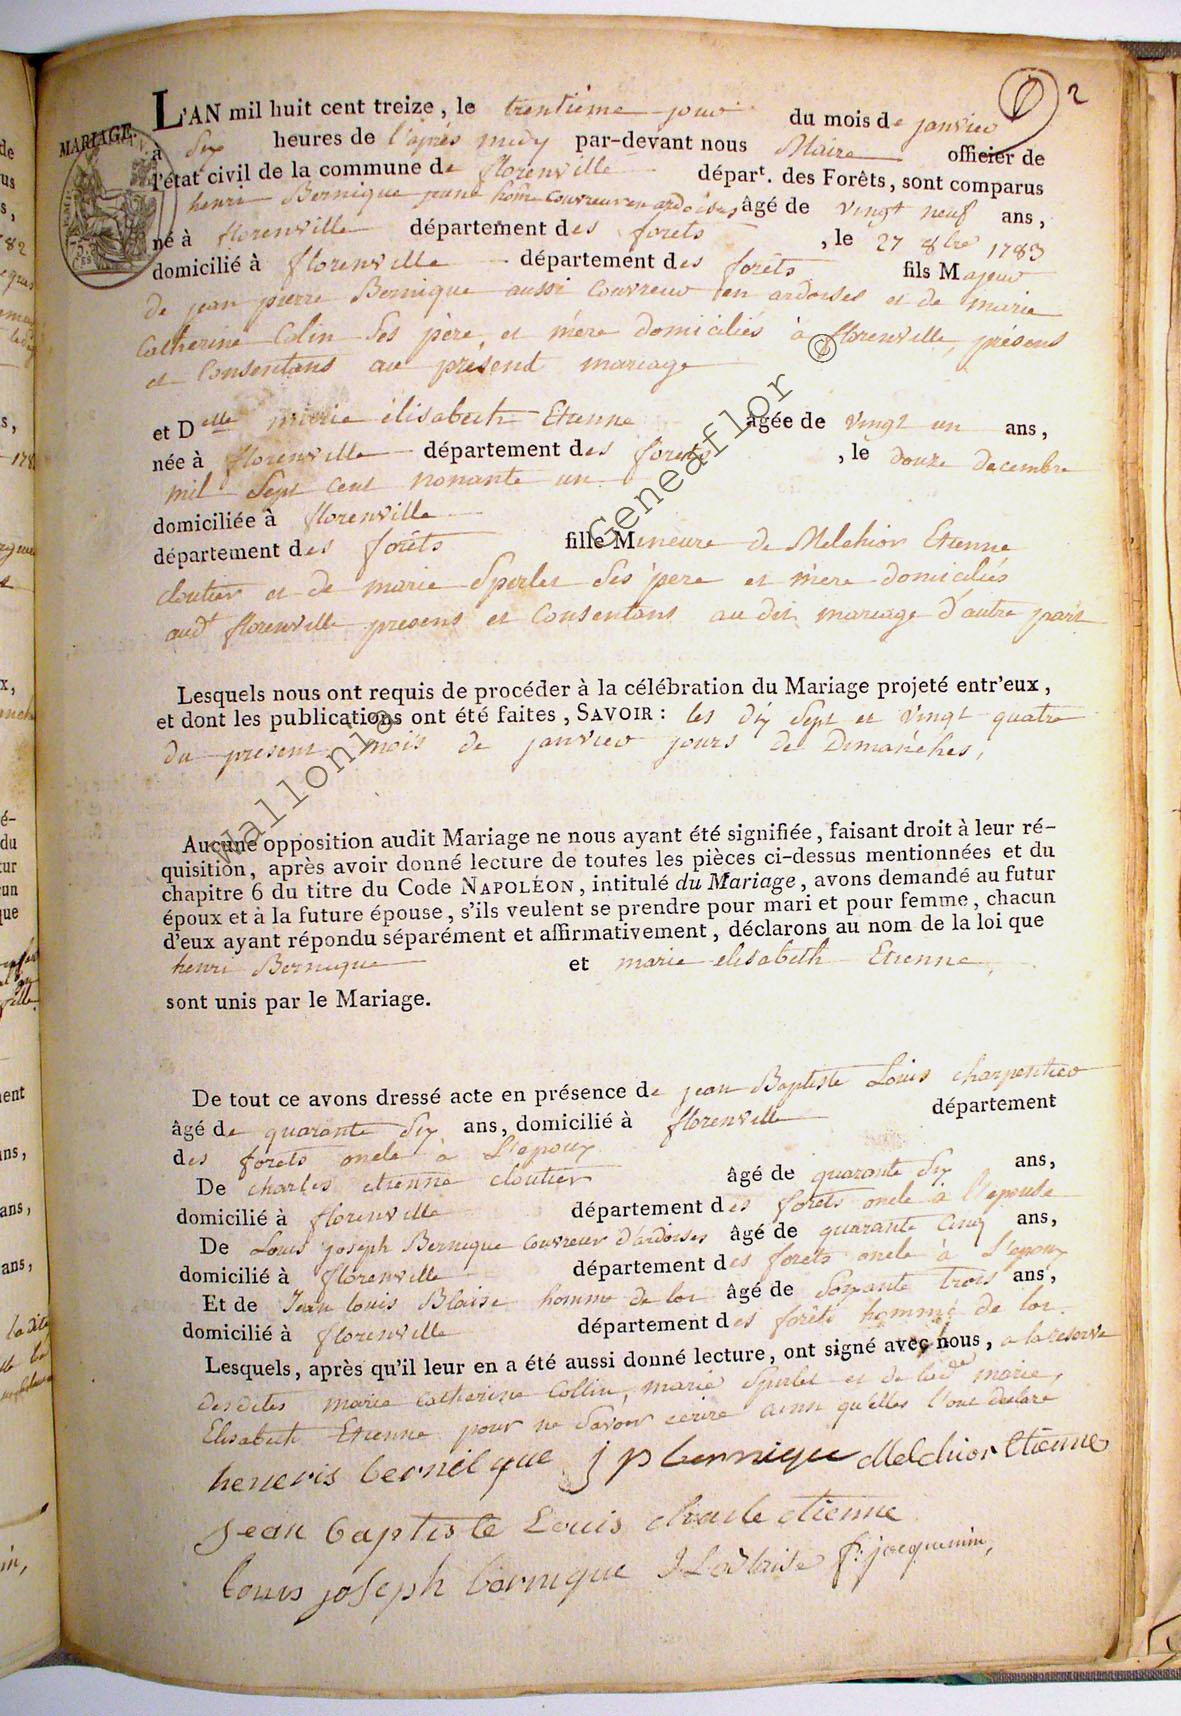 2
MARIAGE.
L'AN mil huit cent treize, le trentième jour du mois de janvier
à six heures de l'après midy par-devant nous Maire officier de
l'état civil de la commune de florenville départ. des Forêts, sont comparus
henri Bernique jeune homme couvreur en ardoises âgé de vingt neuf ans,
né à florenville département des forets, le 27 8bre 1783
domicilié à florenville département des forêts fils Majeur
de jean pierre Bernique aussi couvreur en ardoises et de marie
Catherine Colin Ses père, et mère domiciliés à florenville, présens
et Consentans au présend mariage
et Delle marie élisabeth Etienne âgée de vingt un ans,
née à florenville département des forets, le douze decembre
mil Sept cent nonante un
domiciliée à florenville
département des forêts fille Mineure de Melchior Etienne
cloutier et de marie Sperlet Ses père et mère domiciliés
audt florenville présens et Consentans au dit mariage d'autre part
Lesquels nous ont requis de procéder à la célébration du Mariage projeté entr'eux,
et dont les publications ont été faites, SAVOIR: les dix Sept et vingt quatre
du présent mois de janvier jours de Dimanches,
Aucune opposition audit Mariage ne nous ayant été signifiée, faisant droit à leur ré-
quisition, après avoir donné lecture de toutes les pièces ci-dessus mentionnées et du
chapitre 6 du titre du Code NAPOLÉON, intitulé du Mariage, avons demandé au futur
époux et à la future épouse, s'ils veulent se prendre pour mari et pour femme, chacun
d'eux ayant répondu séparément et affirmativement, déclarons au nom de la loi que
henri Bernique et marie elisabeth Etienne,
sont unis par le Mariage.
De tout ce avons dressé acte en présence de jean Baptiste Louis charpentier
âgé de quarante Six ans, domicilié à florenville département
des forets oncle à L'epoux
De charles etienne cloutier âgé de quarante Six ans,
domicilié à florenville département des forets oncle à l'epouse
De Louis joseph Bernique couvreur d'ardoises âgé de quarante Cinq ans,
domicilié à florenville département des forets oncle à L'epoux
Et de Jean louis Blaise homme de loi âgé de Soixante trois ans,
domicilié à florenville département des forêts homme de loi.
Lesquels, après qu'il leur en a été aussi donné lecture, ont signé avec nous, a la reserve
desdites marie catherine Collin, marie Sperlet et de ladte marie
Elisabeth Etienne pour ne Savoir ecrire ainsi qu'elles l'ont declaré
heneris bernique j p bernique Melchior Etienne
jean baptiste Louis charle etienne
louis joseph bernique J L Blaise f: jacquemin,
Wallonia Geneaflor ©